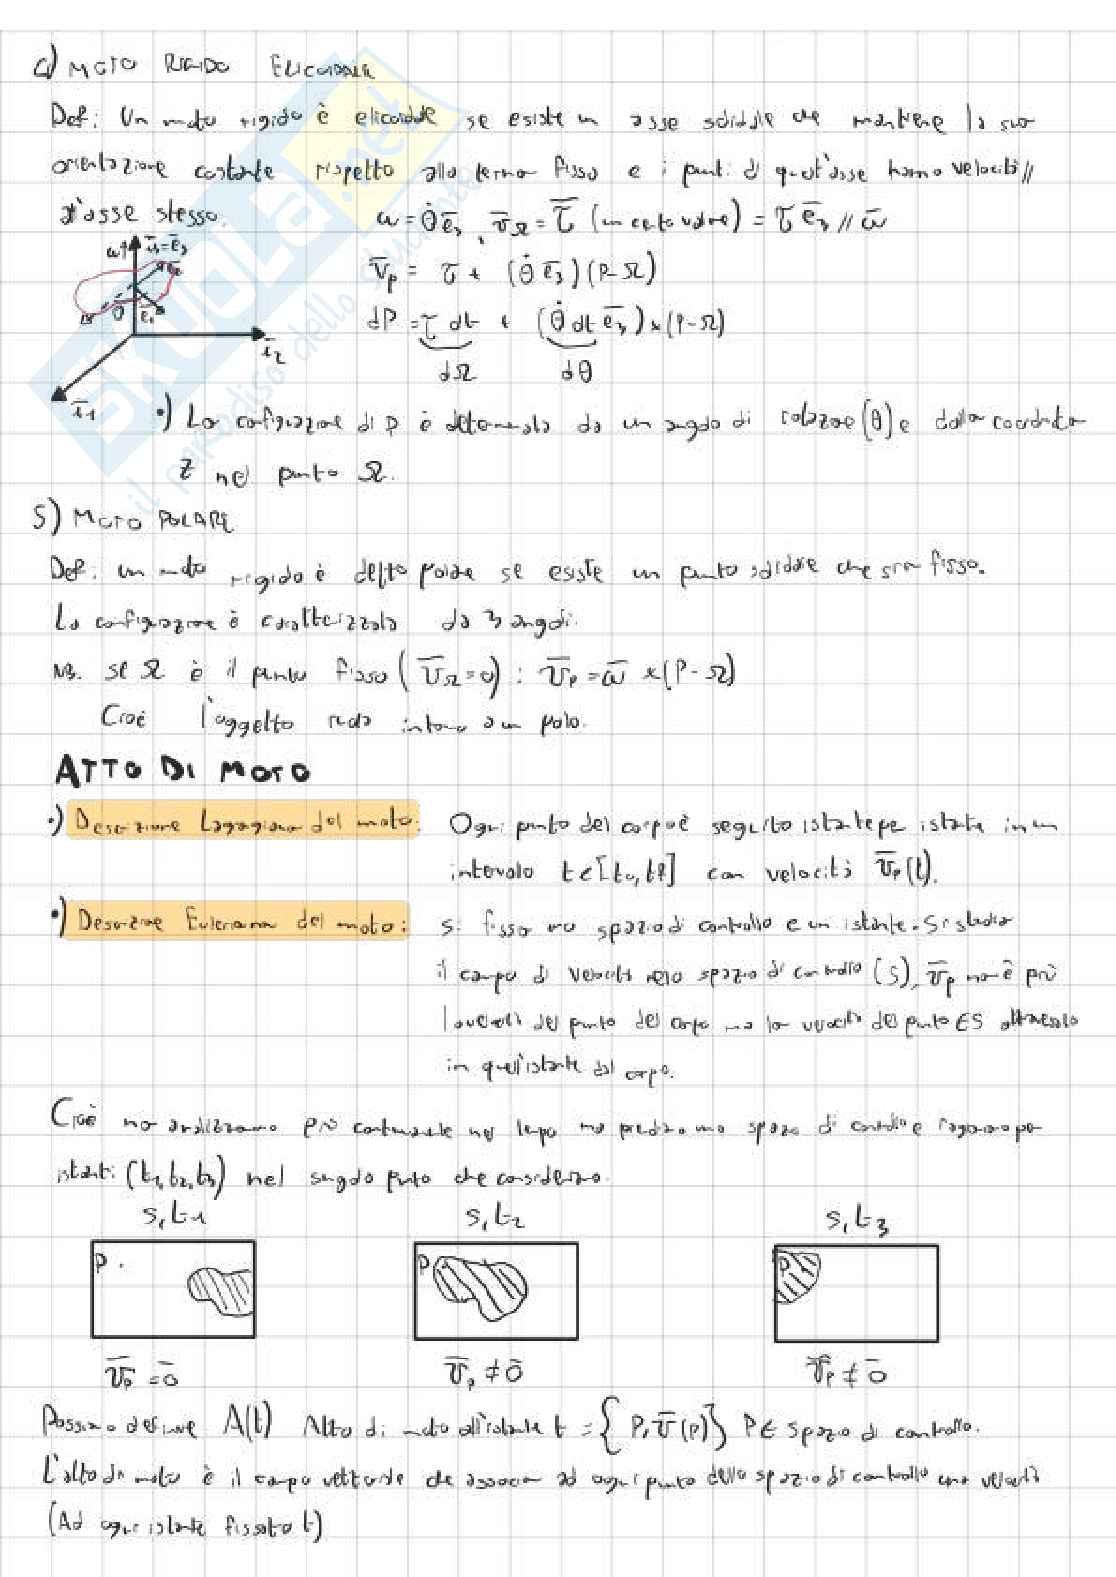 4) MOTO RIGIDO ELICOIDALE
Def: Un moto rigido è elicoidale se esiste un asse solidale che mantiene la sua
orientazione costante rispetto alla terna fissa e i punti di quest'asse hanno velocità //
all'asse stesso.
ω = θ̇ e̅₃, v̅_Ω = τ̅ (un certo valore) = τ e̅₃ // ω̅
ω i̅₃=e̅₃
v̅p = τ + (θ̇ e̅₃)(P-Ω)
θ e̅₁
dP = τ dt + (θ̇ dt e̅₃)×(P-Ω)
i̅₂
dΩ dθ
i̅₁
•) La configurazione di P è determinata da un angolo di rotazione (θ) e dalla coordinata
Z nel punto Ω.
5) MOTO POLARE
Def: un moto rigido è detto polare se esiste un punto solidale che sia fisso.
La configurazione è caratterizzata da 3 angoli.
NB. se Ω è il punto fisso (v̅_Ω=0): v̅p = ω̅ ×(P-Ω)
Cioè l'oggetto ruota intorno a un polo.
ATTO DI MOTO
•) Descrizione Lagragiana del moto: Ogni punto del corpo è seguito istante per istante in un
intervallo t∈[t₀,tf] con velocità v̅p(t).
•) Descrizione Euleriana del moto: si fissa uno spazio di controllo e un istante. Si studia
il campo di velocità nello spazio di controllo (S), v̅p non è più
la velocità del punto del corpo ma la velocità del punto ∈S attraversato
in quell'istante dal corpo.
Cioè non analizziamo più continuamente nel tempo ma prendiamo spazio di controllo e ragioniamo per
istanti (t₁,t₂,t₃) nel singolo punto che consideriamo.
S,t₁ S,t₂ S,t₃
P. P P
v̅p = 0̅ v̅p ≠ 0̅ v̅p ≠ 0̅
Possiamo definire A(t) Atto di moto all'istante t = {P,v̅(p)} P∈ spazio di controllo.
L'atto di moto è il campo vettoriale che associa ad ogni punto dello spazio di controllo una velocità
(Ad ogni istante fissato t)
SKUOLA.net
il paradiso dello studente